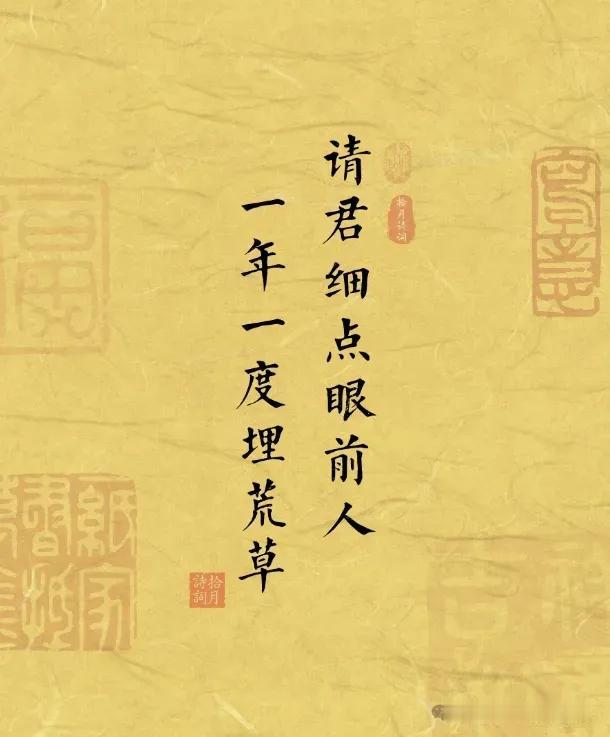 请君细点眼前人
一年一度埋荒草
拾月诗词
拾月
詩詞